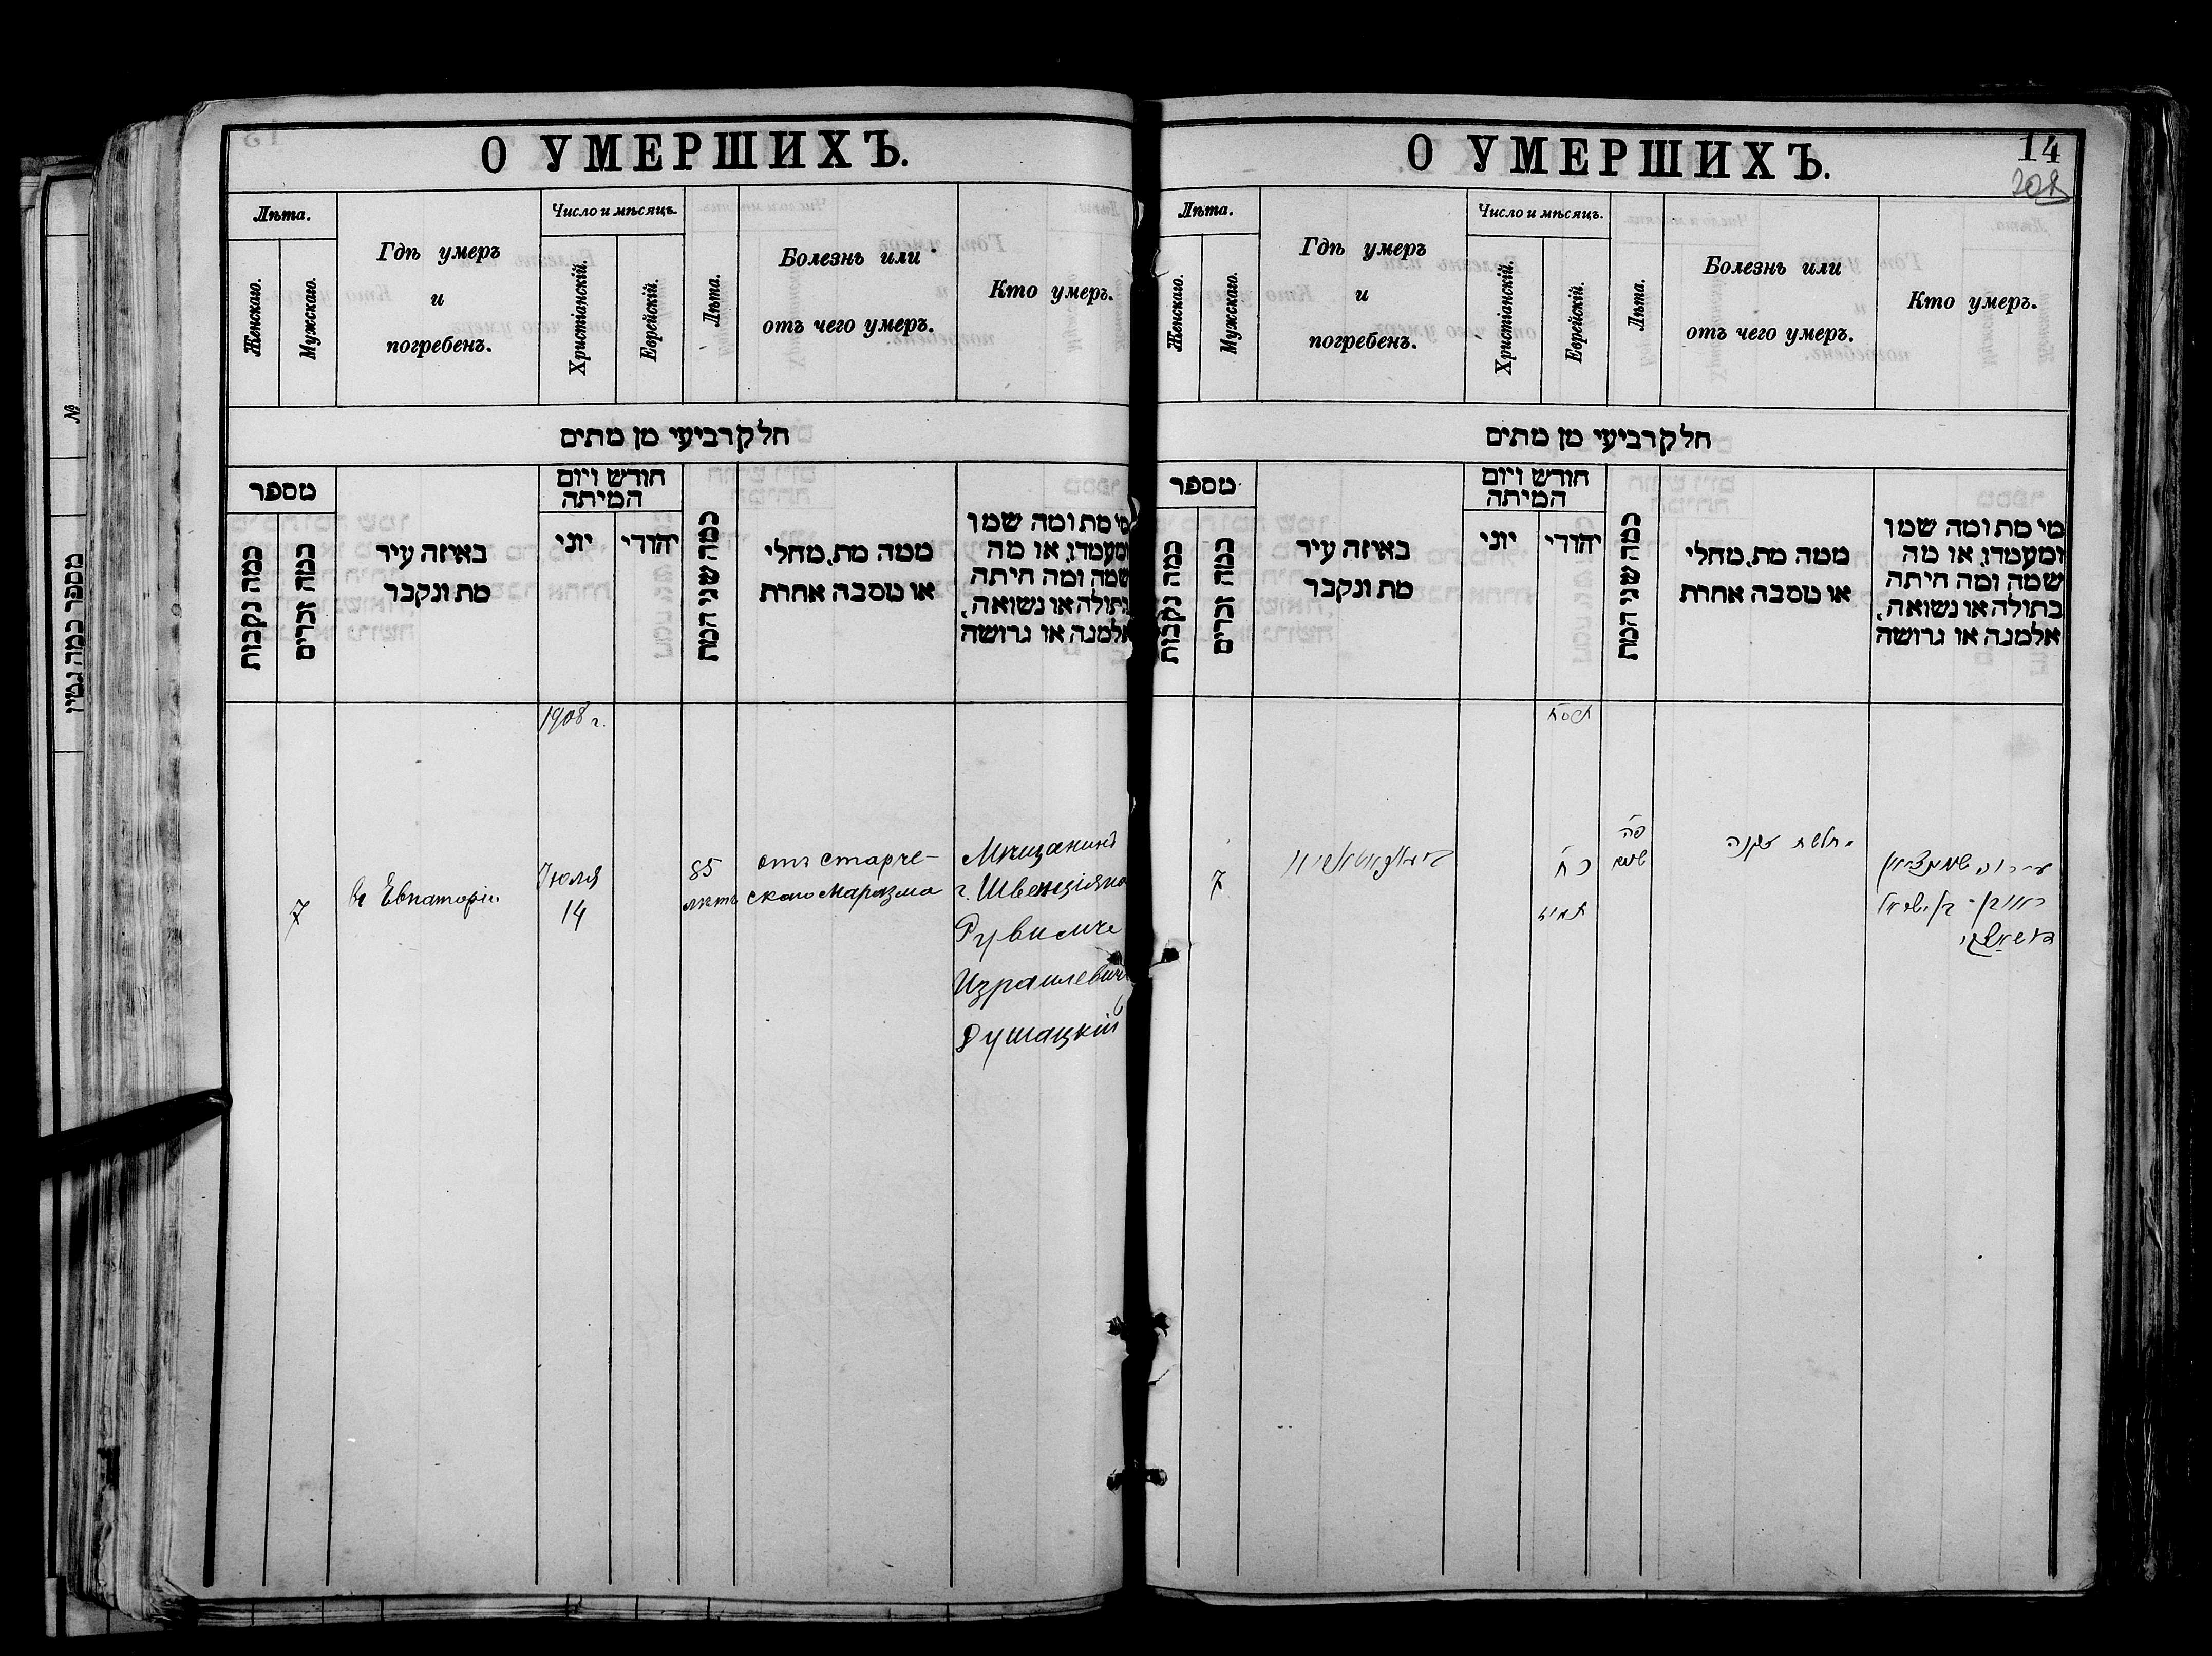 О УМЕРШИХЪ.
Лѣта.
Женскаго.
Мужскаго.
Гдѣ умеръ
и
погребенъ.
Число и мѣсяцъ.
Христіанскій.
Еврейскій.
Лѣта.
Болезнь или
отъ чего умеръ.
Кто умеръ.
חלק רביעי מן מתים
מספר
כמה נקבות
כמה זכרים
באיזה עיר
מת ונקבר
חודש ויום
המיתה
יוני
יהודי
כמה שני המת
ממה מת, מחלי
או מסבה אחרת
מי מת ומה שמו
ומעמדו, או מה
שמה ומה היתה
בתולה או נשואה,
אלמנה או גרושה
1908 г.
7
въ Евпаторіи
Іюля
14
85
лѣтъ
отъ старче-
скаго маразма
Мѣщанинъ
г. Швенціяна
Рувимъ
Израилевичъ
Душацкій
О УМЕРШИХЪ.
14
Лѣта.
Женскаго.
Мужскаго.
Гдѣ умеръ
и
погребенъ.
Число и мѣсяцъ.
Христіанскій.
Еврейскій.
Лѣта.
Болезнь или
отъ чего умеръ.
Кто умеръ.
חלק רביעי מן מתים
מספר
כמה נקבות
כמה זכרים
באיזה עיר
מת ונקבר
חודש ויום
המיתה
יוני
יהודי
כמה שני המת
ממה מת, מחלי
או מסבה אחרת
מי מת ומה שמו
ומעמדו, או מה
שמה ומה היתה
בתולה או נשואה,
אלמנה או גרושה
תרסח
7
כח
תמוז
פה
שנים
חלשת זקנה
ראובן בן ישראל
דושאצקי
№